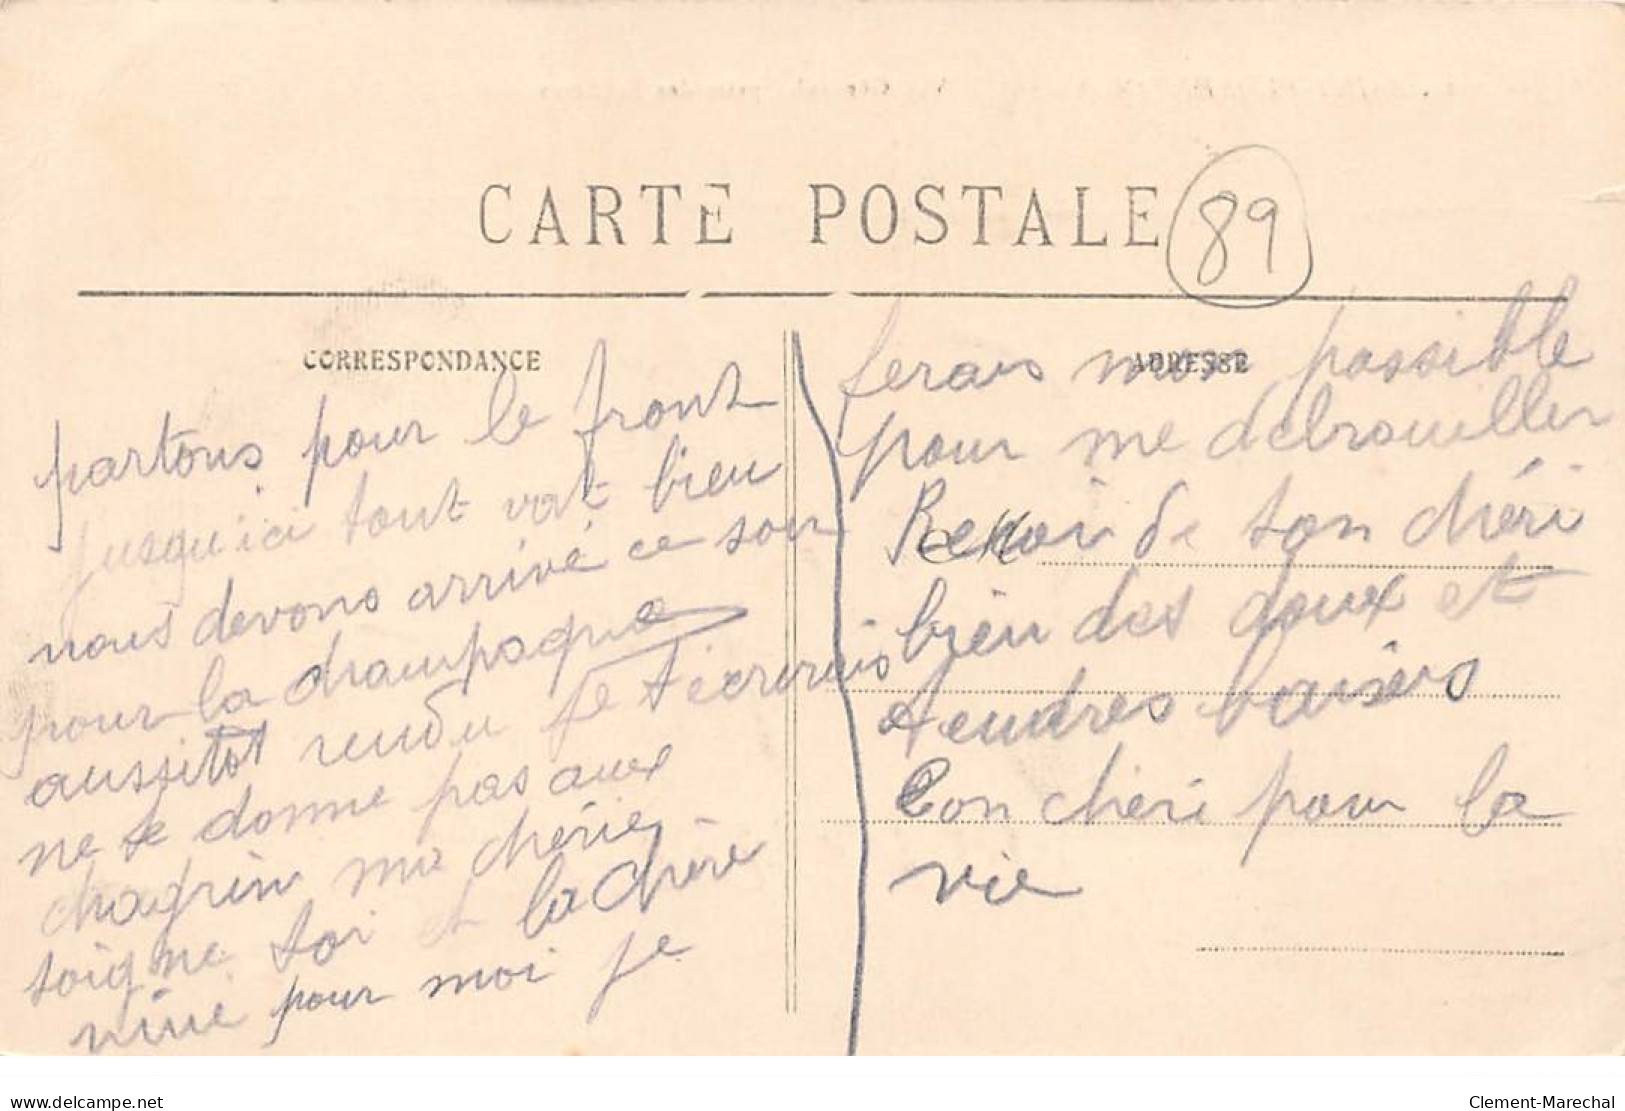 CARTE POSTALE
89
CORRESPONDANCE
partons pour le front
jusqu'ici tout vat bien
nous devons arrivé ce soir
pour la champagne
aussitot rendu je t'ecrirais
ne te donne pas aux
chagrin ma chérie
soigne toi et la chère
nine pour moi je
ADRESSE
ferais mon possible
pour me debrouiller
de ton chéri
bien des doux et
tendres baisers
Ton cheri pour la
vie
www.delcampe.net
Clement-Marechal